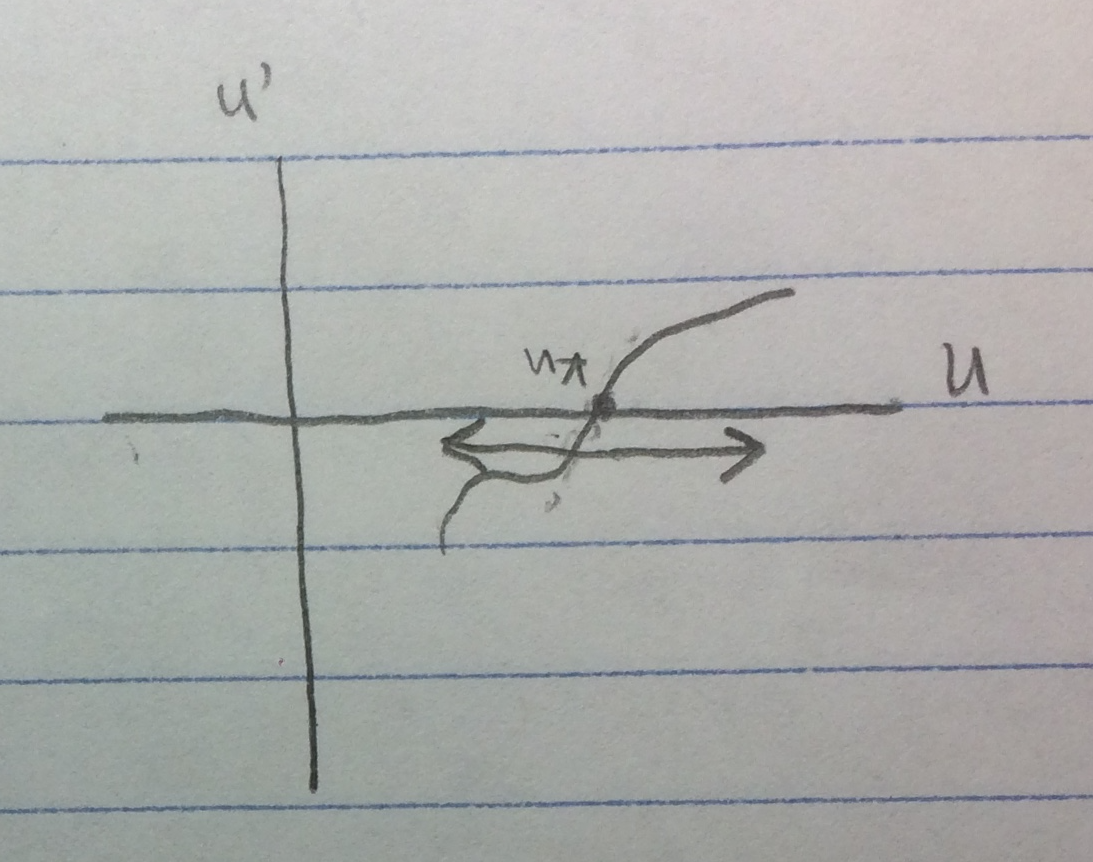 u'
u*
u